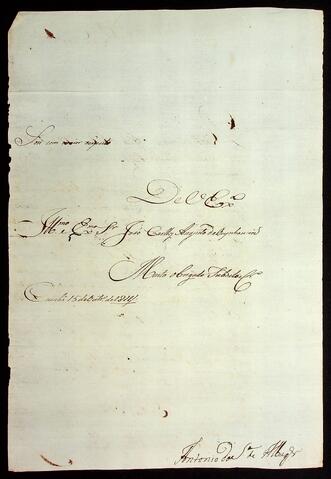 Sou com maior respeito
De V.ª Ex.ª
Ill.mo e Ex.mo Sr. José Carlos Augusto de Oeynhausen
Muito obrigado Subdito
Cuiabá 15 de de 1814
Antonio Joe S.ª de